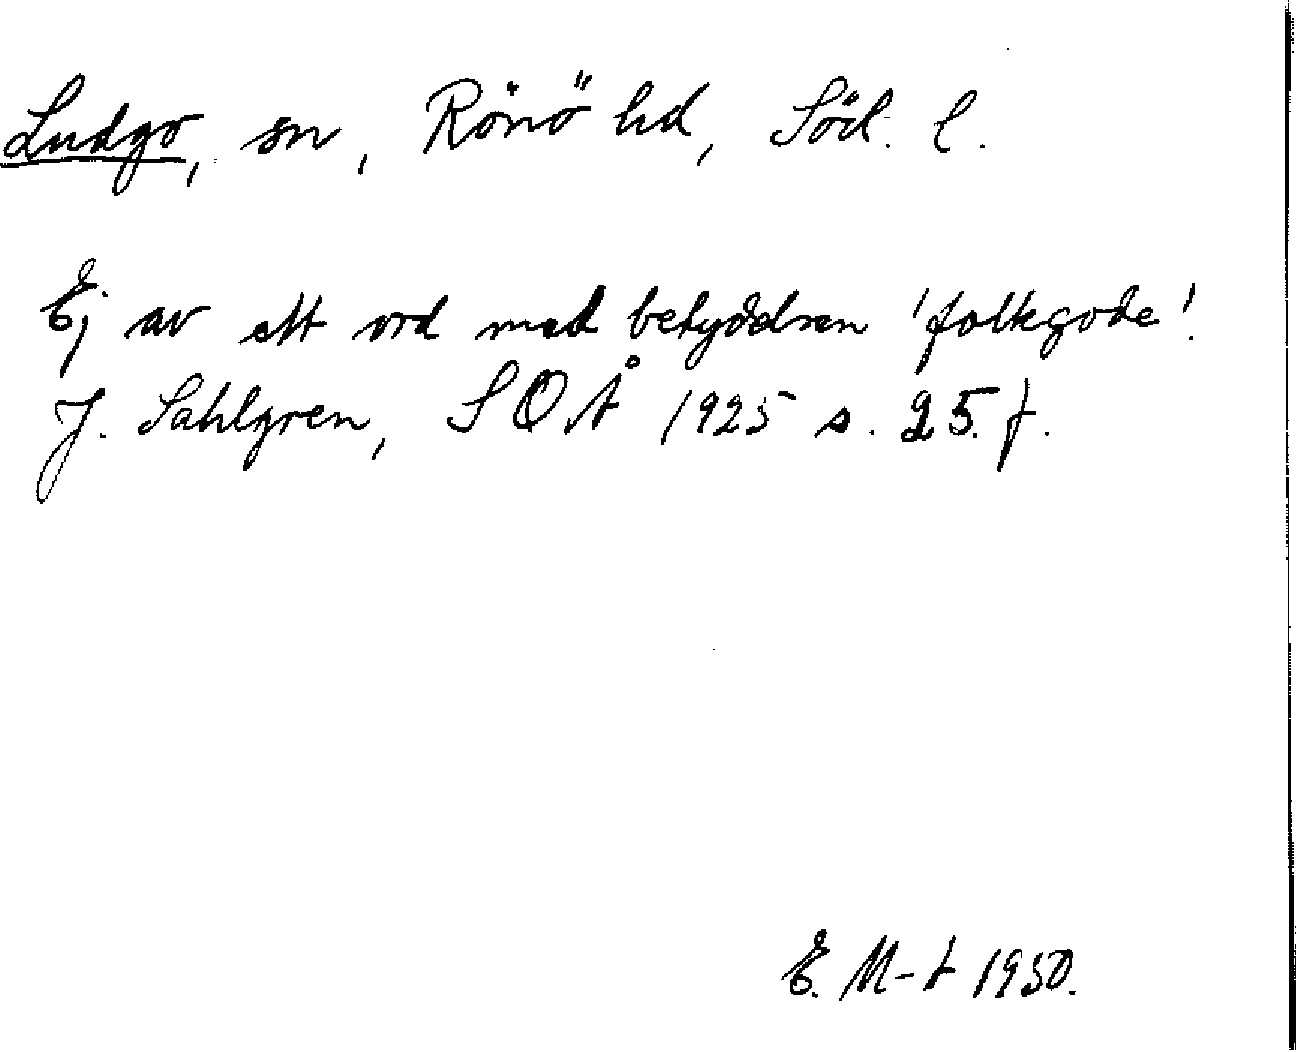 Ludgo, sn, Rönö hd, Söd. l.
Ej av ett ord med betydelsen 'folkgode'.
J. Sahlgren, SOÅ 1925 s. 25 f.
E. M-t 1950.